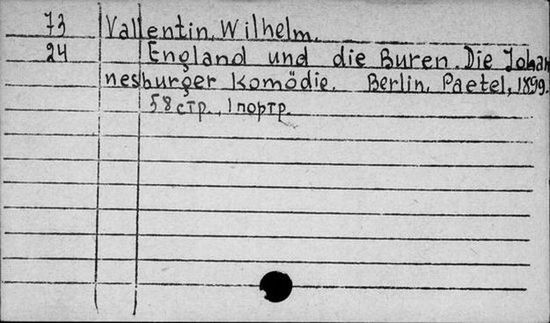 73 Vallentin, Wilhelm.
24 England und die Buren. Die Johan
nesburger Komödie. Berlin, Paetel, 1899.
58 стр., 1 портр.